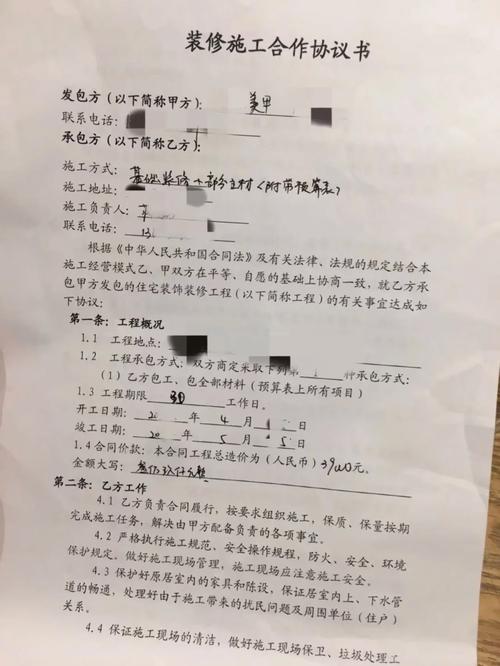 装修施工合作协议书
发包方（以下简称甲方）： 美甲
联系电话：
承包方（以下简称乙方）：
施工方式：基础装修＋部分主材（附带预算表）
施工地址：
施工负责人：
联系电话：13
根据《中华人民共和国合同法》及有关法律、法规的规定结合本
施工经营模式乙、甲双方在平等、自愿的基础上协商一致，就乙方承
包甲方发包的住宅装饰装修工程（以下简称工程）的有关事宜达成如
下协议：
第一条：工程概况
1.1 工程地点：
1.2 工程承包方式：双方商定采取下列第 种承包方式：
（1）乙方包工、包全部材料（预算表上所有项目）
1.3 工程期限 30 工作日。
开工日期：20 年 4 月 日
竣工日期：20 年 5 月 5 日
1.4 合同价款：本合同工程总造价为（人民币）3900元。
金额大写：叁仟玖佰元整
第二条：乙方工作
4.1 乙方负责合同履行，按要求组织施工，保质、保量按期
完成施工任务，解决由甲方配备负责的各项事宜。
4.2 严格执行施工规范、安全操作规程，防火、安全、环境
保护规定。做好施工现场管理，施工现场应注意施工安全。
4.3 保护好原居室内的家具和陈设，保证居室内上、下水管
道的畅通，处理好由于施工带来的扰民问题及周围单位（住户）
关系。
4.4 保证施工现场的清洁，做好施工现场保卫、垃圾处理工